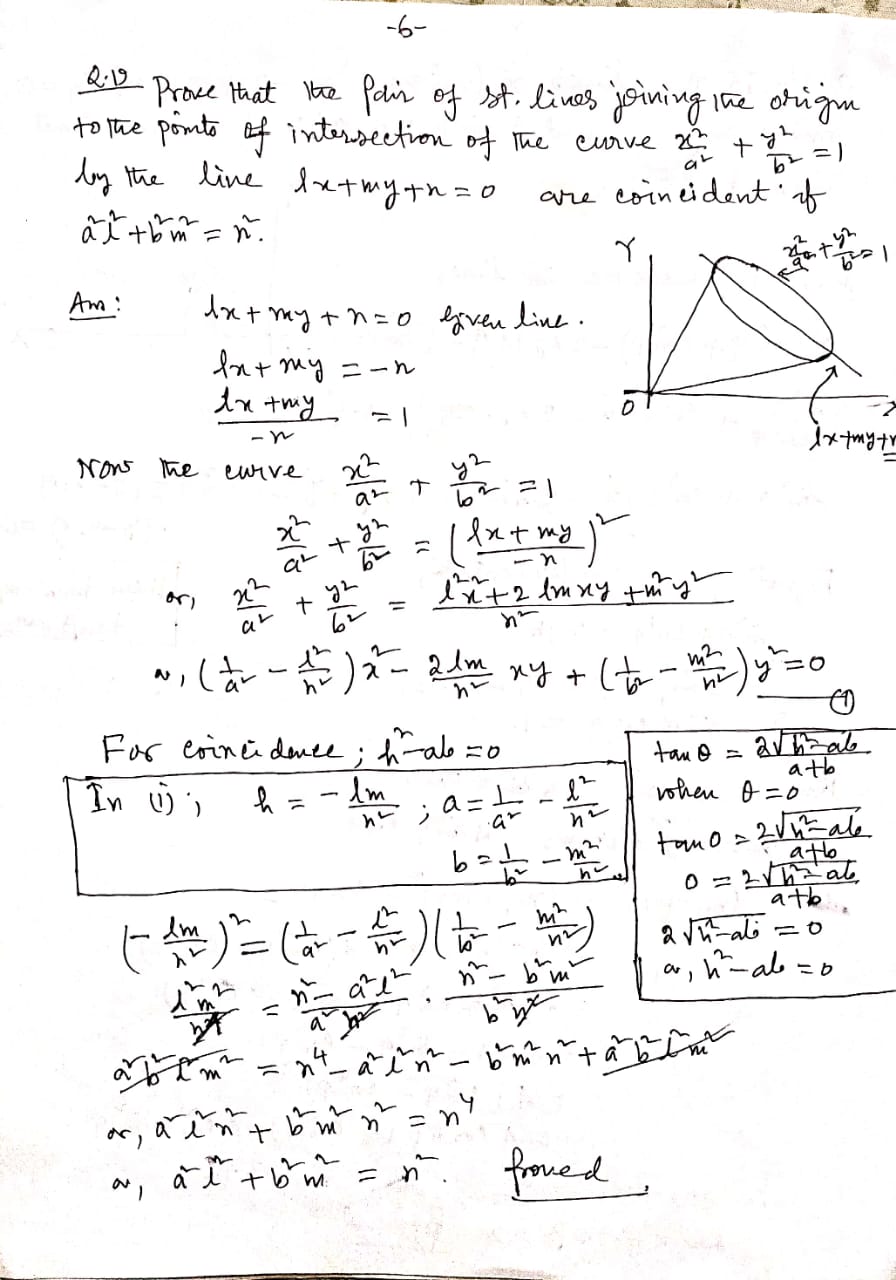 -6-
Q.19 Prove that the pair of st. lines joining the origin
to the points of intersection of the curve x²/a² + y²/b² = 1
by the line lx+my+n=0 are coincident if
a²l²+b²m² = n².
Y
x²/a² + y²/b² = 1
O
lx+my+n
Ans: lx+my+n=0 given line.
lx+my = -n
(lx+my)/-n = 1
Now the curve x²/a² + y²/b² = 1
x²/a² + y²/b² = ((lx+my)/-n)²
or, x²/a² + y²/b² = (l²x²+2lmxy+m²y²)/n²
or, (1/a² - l²/n²)x² - 2lm/n² xy + (1/b² - m²/n²)y² = 0 ①
For coincidence; h²-ab=0
In (i); h = -lm/n² ; a = 1/a² - l²/n²
b = 1/b² - m²/n²
tan θ = 2√h²-ab/a+b
when θ=0
tan 0 = 2√h²-ab/a+b
0 = 2√h²-ab/a+b
2√h²-ab = 0
or, h²-ab=0
(-lm/n²)² = (1/a² - l²/n²)(1/b² - m²/n²)
l²m²/n⁴ = n²-a²l²/a²n² . n²-b²m²/b²n²
a²b²l²m² = n⁴-a²l²n²-b²m²n²+a²b²l²m²
or, a²l²n² + b²m²n² = n⁴
or, a²l² + b²m² = n². proved.